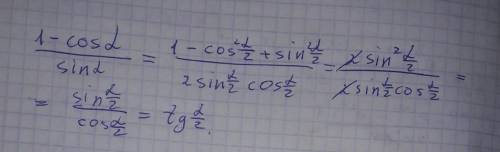 (1 - cosα)/(sinα) = (1 - cos²(α/2) + sin²(α/2))/(2 sin(α/2) cos(α/2)) = (2 sin²(α/2))/(2 sin(α/2) cos(α/2)) =
= (sin(α/2))/(cos(α/2)) = tg(α/2).